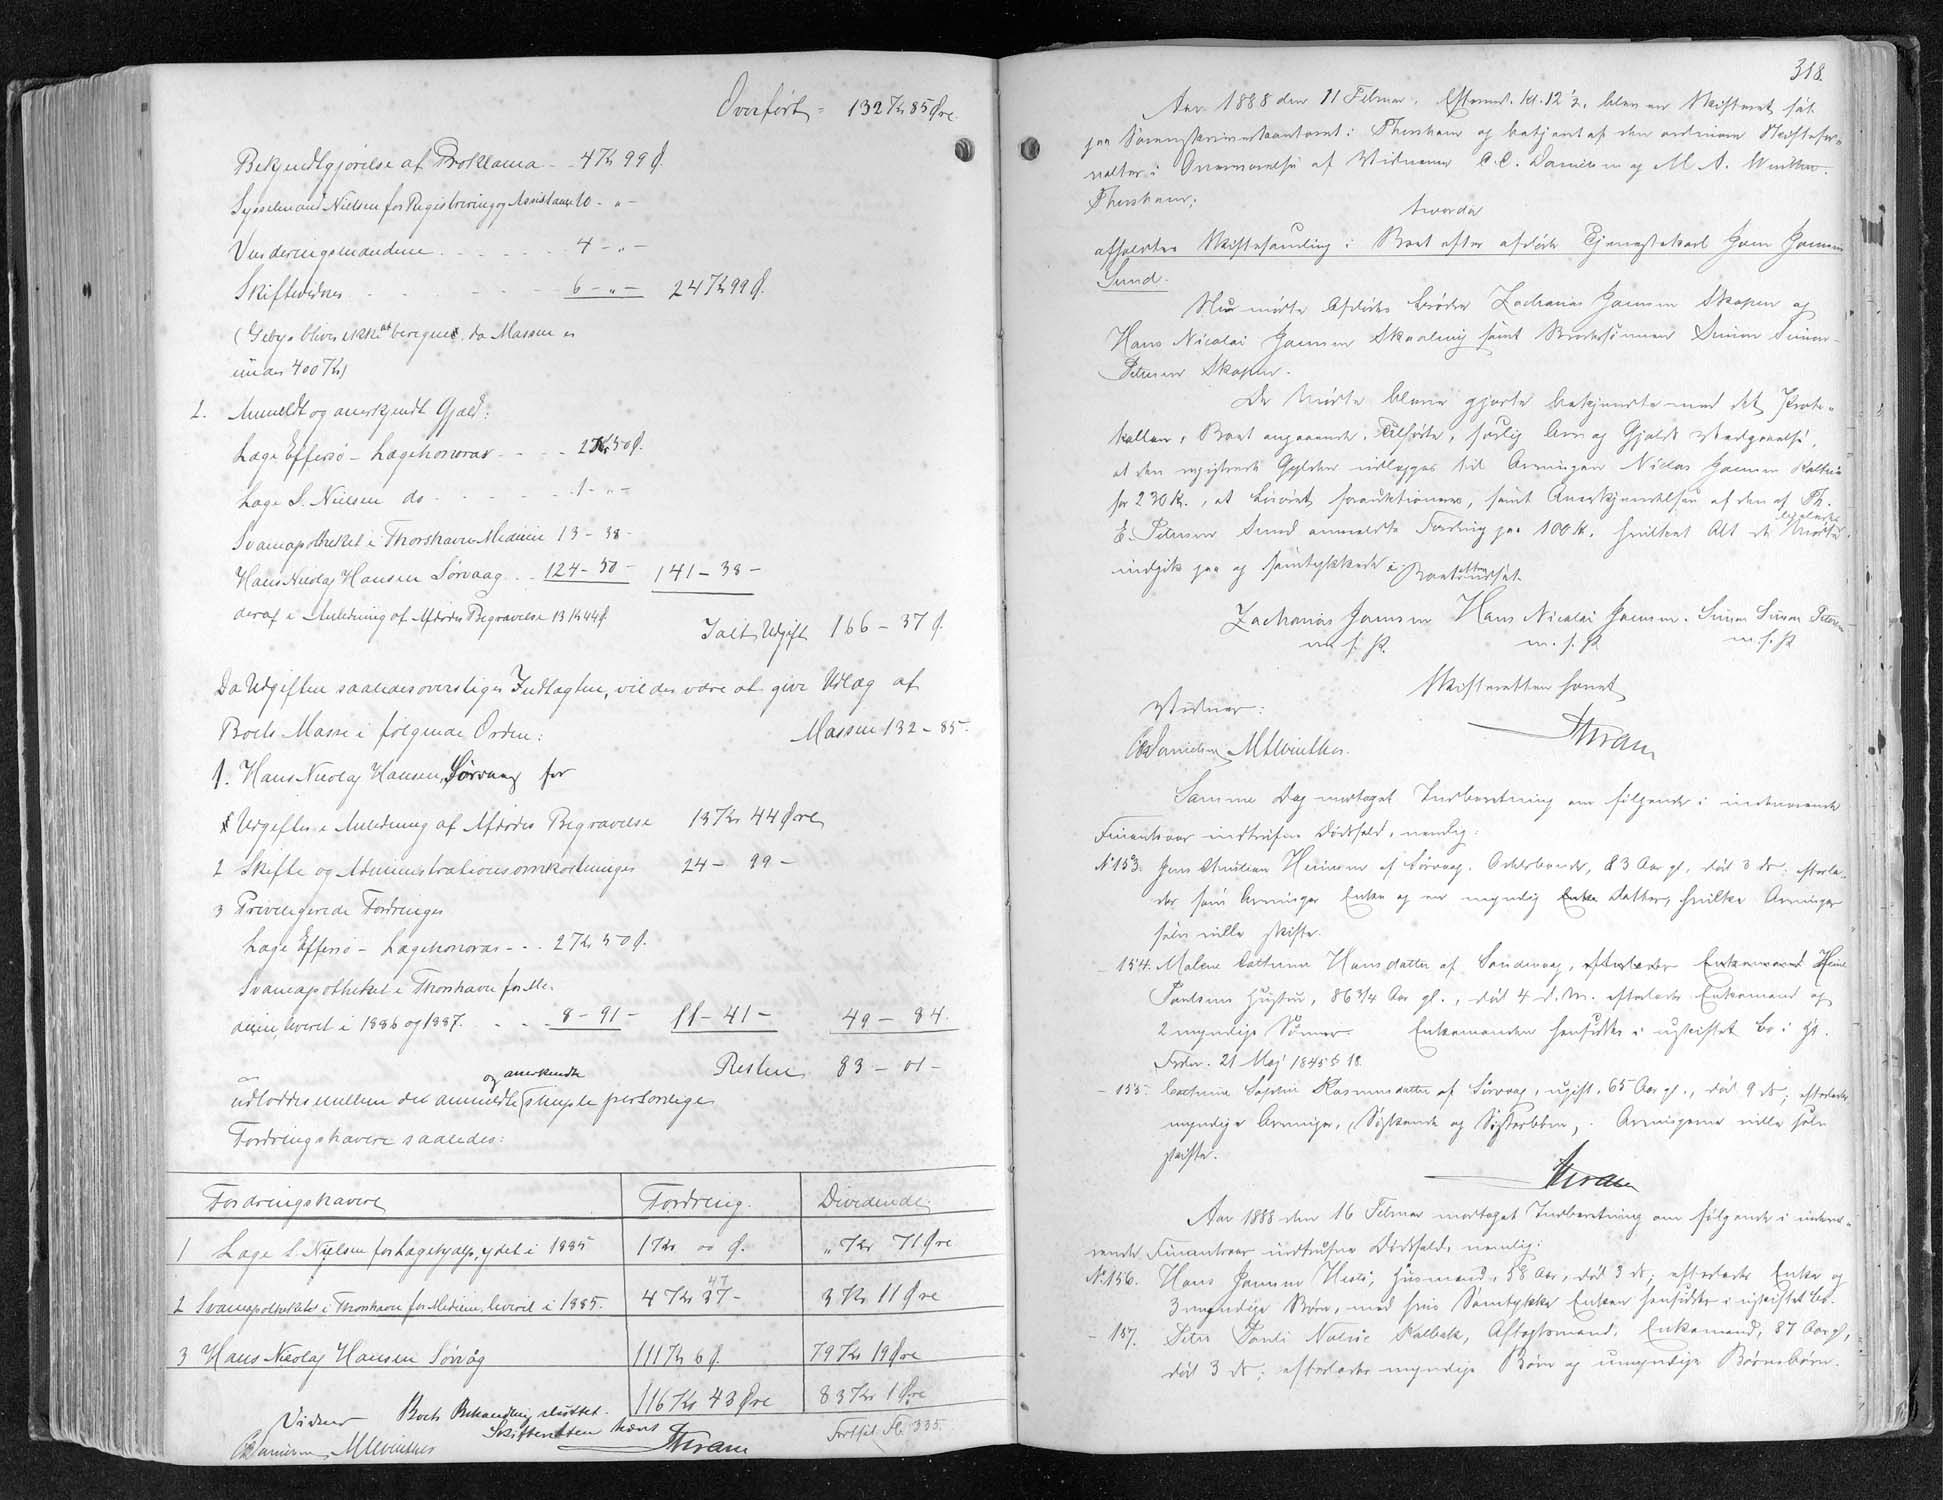 Overført - 132 Kr 85 Øre.
Bekjendtgjørelse af Proklama - - 4 Kr 99 Ø.
Sysselmand Nielsen for Registrering og Assistance 10 - " -
Vurderingsmændene . . . . . . 4 - " -
Skiftevidner . . . . . . 6 - " - 24 Kr 99 Ø.
(Gebyr bliver ikke at beregne, da Massen er
under 400 Kr)
2. Anmeldt og anerkjendt Gjæld:
Læge Effersø - Lægehonorar - - - - 2 Kr 50 Ø.
Læge S. Nielsen do - - - - - 1 - " -
Svaneapotheket i Thorshavn Medicin 13 - 38 -
Hans Nicolaj Hansen Sørvaag . . 124 - 50 - 141 - 38 -
deraf i Anledning af Afdødes Begravelse 13 Kr 44 Ø.
Ialt Udgift 166 - 37 Ø.
Da Udgiften saaledes overstiger Indtægten, vil der være at give Udlæg af
Boets Masse i følgende Orden: Massen 132 - 85 -
1. Hans Nicolaj Hansen, Sørvaag for
Udgifter i Anledning af Afdødes Begravelse 13 Kr 44 Øre
2 Skifte og Administrationsomkostninger 24 - 99 -
3 Privilegerede Fordringer
Læge Effersø - Lægehonorar - - . 2 Kr 50 Ø.
Svaneapotheket i Thorshavn for Me-
dicin, leveret i 1886 og 1887. . . . 8 - 91 - 11 - 41 - 49 - 84.
Resten 83 - 01 -
og anerkendte
udloddes mellem de anmeldte simple personlige
Fordringshavere saaledes:
Fordringshavere Fordring. Dividende.
1 Læge S. Nielsen for Lægehjælp, ydet i 1885 1 Kr 00 Ø. " Kr 71 Øre
2 Svaneapotheket i Thorshavn for Medicin, leveret i 1885. 4 Kr 37 - 3 Kr 11 Øre
3 Hans Nicolaj Hansen Sørvåg 111 Kr 6 Ø. 79 Kr 19 Øre
116 Kr 43 Øre 83 Kr 1 Øre
Vidner Boets Behandling sluttet. Fortsat Fol. 335.
Skifteretten hævet
CDanielsen MAWinther
318.
Aar 1888 den 11 Februar, Eftermd. Kl. 12 1/2, blev en Skifteret sat
paa Sorenskriverkontoret i Thorshavn og betjent af den ordinære Skiftefor-
valter i Overværelse af Vidnerne C. C. Danielsen og M. A. Winther.
Thorshavn;
hvorda
afholdtes Skiftesamling i Boet efter afdøde Tjenestekarl Joen Joensen
Sund.
Nu mødte Afdødes Brødre Zacharias Joensen Skopen og
Hans Nicolai Joensen Skaaling samt Brodersønnen Simon Simon-
Petersen Skopen.
De Mødte bleve gjorte bekjendte med det Proto-
kollen, Boet angaaende, Tilførte, særlig Arv og Gjælds Vedgaaelse,
at den registrerede Gjæld udlægges til Arvingen Niclas Joensen
for 230 Kr., at Løsøret forauktioneres, samt Anerkjendelsen af den af Th.
E. Petersen Sund anmeldte Fordring paa 100 Kr. hvilket Alt de Mødte
indgik paa og samtykkede i. Boet udsat.
Zacharias Joensen Hans Nicolai Joensen. Simon Simon Petersen
m. f. P. m. f. P. m. f. P.
Skifteretten hævet
Vidner:
CCDanielsen MAWinther.
Samme Dag modtaget Indberetning om følgende i indeværende
Finantsaar indtrufne Dødsfald, nemlig:
No 153. Jens Christian Heinesen af Sørvaag, Odelsbonde, 83 Aar gl., død 3 ds; efterla-
der som Arvinger Enke og en myndig Datter, hvilke Arvinger
selv ville skifte.
- 154. Malene Cathrine Hansdatter af Sandevaag,
Poulsens Hustru, 86 3/4 Aar gl., død 4 d. M. efterlader Enkemand og
2 myndige Sønner. Enkemanden hensidder i uskiftet Bo i Hht.
Fordn. 21 Maj 1845 § 18.
- 155. Cathrine Sophie Rasmusdatter af Sørvaag, ugift, 65 Aar gl., død 9 ds; efterlader
myndige Arvinger, (Søskende og Søsterbørn). Arvingerne ville selv
skifte.
Aar 1888 den 16 Februar modtaget Indberetning om følgende i indevæ-
rende Finantsaar indtrufne Dødsfald, nemlig:
No 156. Hans Joensen Husmand, 58 Aar, død 3 ds; efterlader Enke og
3 myndige Børn, med hvis Samtykke Enken hensidder i uskiftet Bo.
- 157. Peter Poul Kalbak, Aftægtsmand, Enkemand, 87 Aar gl,
død 3 ds; efterlader myndige Børn og umyndige Børnebørn.